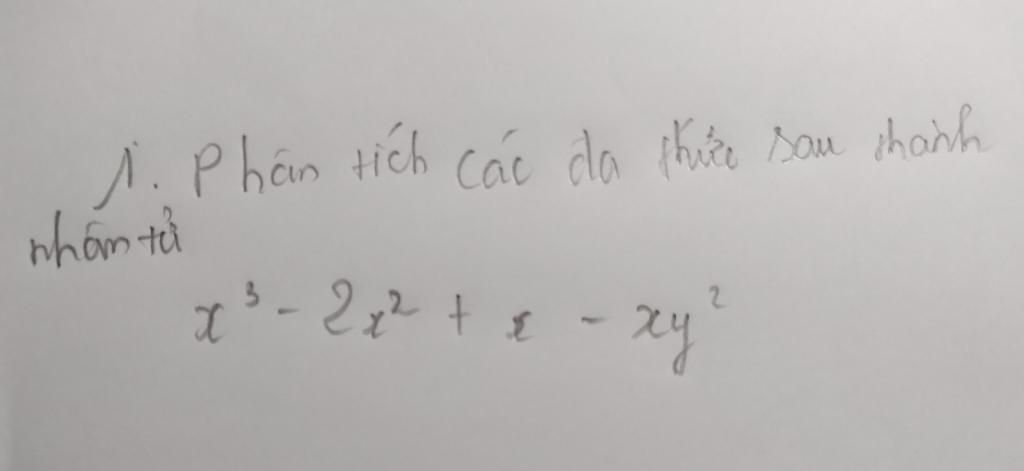 1. Phân tích các đa thức sau thành
nhân tử
x³ - 2x² + x - xy²